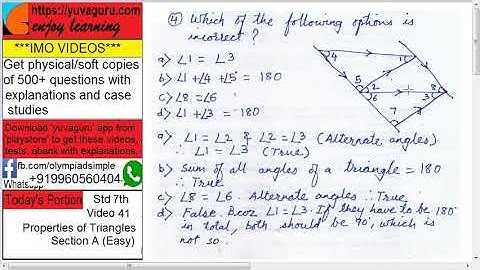 https://yuvaguru.com
enjoy learning
***IMO VIDEOS***
Get physical/soft copies
of 500+ questions with
explanations and case
studies
Download 'yuvaguru' app from
'playstore' to get these videos,
tests, qbank with explanations,
fb.com/olympiadsimple
Whatsapp
+919960560404
Today's Portion
Std 7th
Video 41
Properties of Triangles
Section A (Easy)
④ Which of the following options is
incorrect ?
a) ∠1 = ∠3
b) ∠1 + ∠4 + ∠5 = 180
c) ∠8 = ∠6
d) ∠1 + ∠3 = 180
4
1
5
2
6
3
8
7
a) ∠1 = ∠2 & ∠2 = ∠3 (Alternate angles)
∴ ∠1 = ∠3 (True)
b) Sum of all angles of a triangle = 180
∴ True
c) ∠8 = ∠6 . Alternate angles ∴ True
d) False. Bcoz ∠1 = ∠3. If they have to be 180°
in total, both should be 90°, which is
not so.